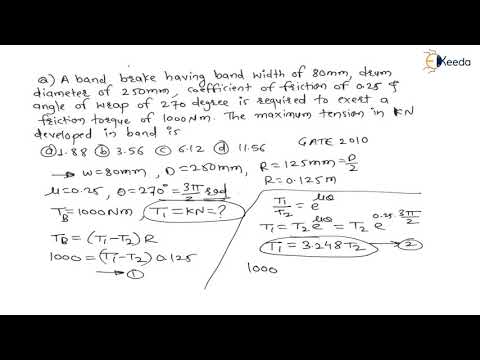 Keeda
Q) A band brake having band width of 80mm, drum
diameter of 250mm, coefficient of friction of 0.25 &
angle of wrap of 270 degree is required to exert a
friction torque of 1000Nm. The maximum tension in kN
developed in band is
(a) 1.88 (b) 3.56 (c) 6.12 (d) 11.56
GATE 2010
→ W=80mm, D=250mm, R=125mm=D/2
R=0.125m
μ=0.25, θ=270°=3π/2 rad
T_B=1000Nm, T₁=kN=?
T_B=(T₁-T₂)R
1000=(T₁-T₂)0.125
→①
T₁/T₂=e^μθ
T₁=T₂e^μθ=T₂e^0.25·3π/2
T₁=3.248T₂→②
1000